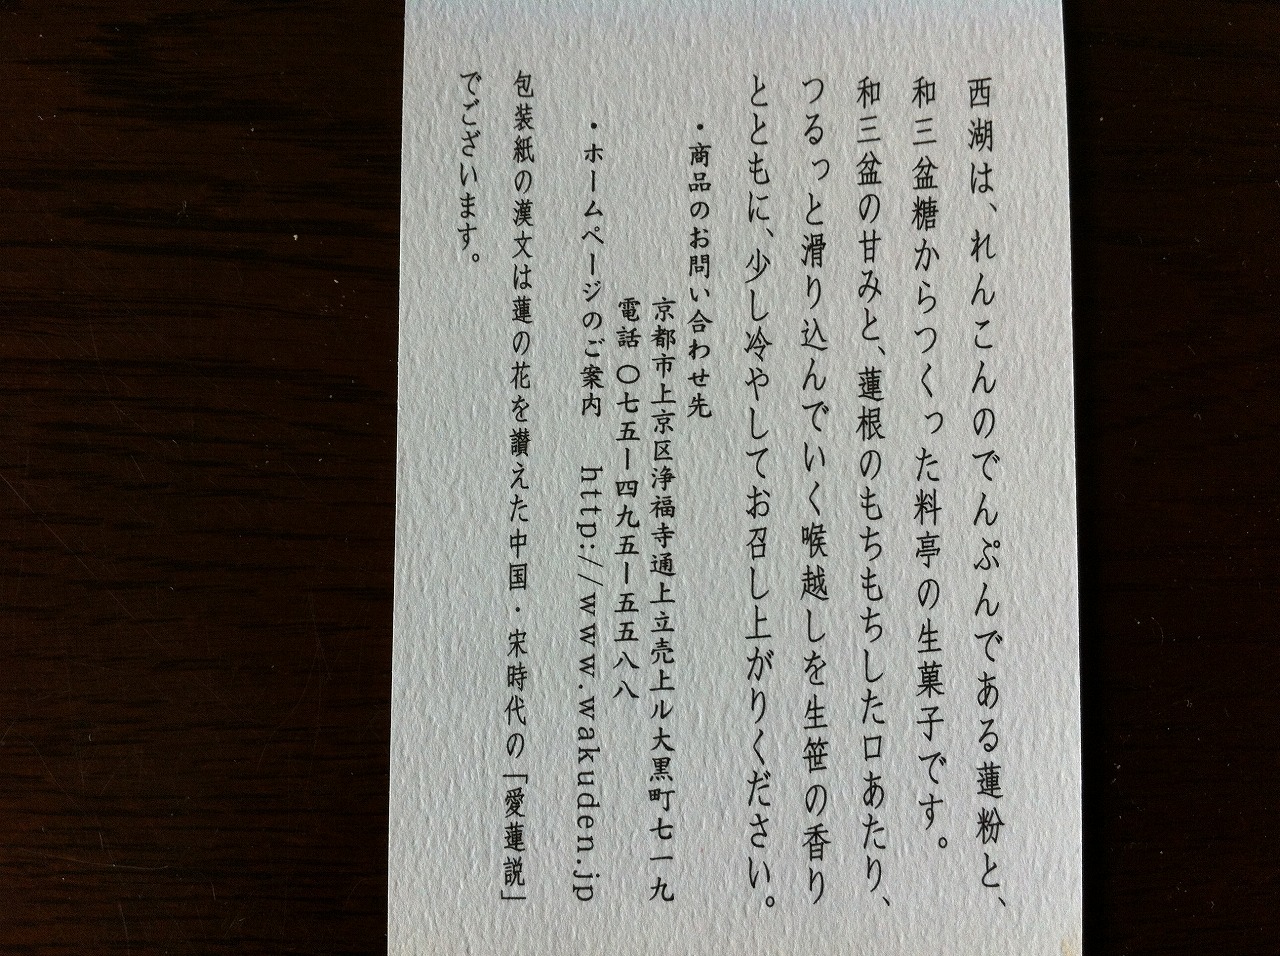 西湖は、れんこんのでんぷんである蓮粉と、
和三盆糖からつくった料亭の生菓子です。
和三盆の甘みと、蓮根のもちもちした口あたり、
つるっと滑り込んでいく喉越しを生笹の香り
とともに、少し冷やしてお召し上がりください。
・商品のお問い合わせ先
京都市上京区浄福寺通上立売上ル大黒町七一九
電話 〇七五ー四九五ー五五八八
・ホームページのご案内 http://www.wakuden.jp
包装紙の漢文は蓮の花を讃えた中国・宋時代の「愛蓮説」
でございます。